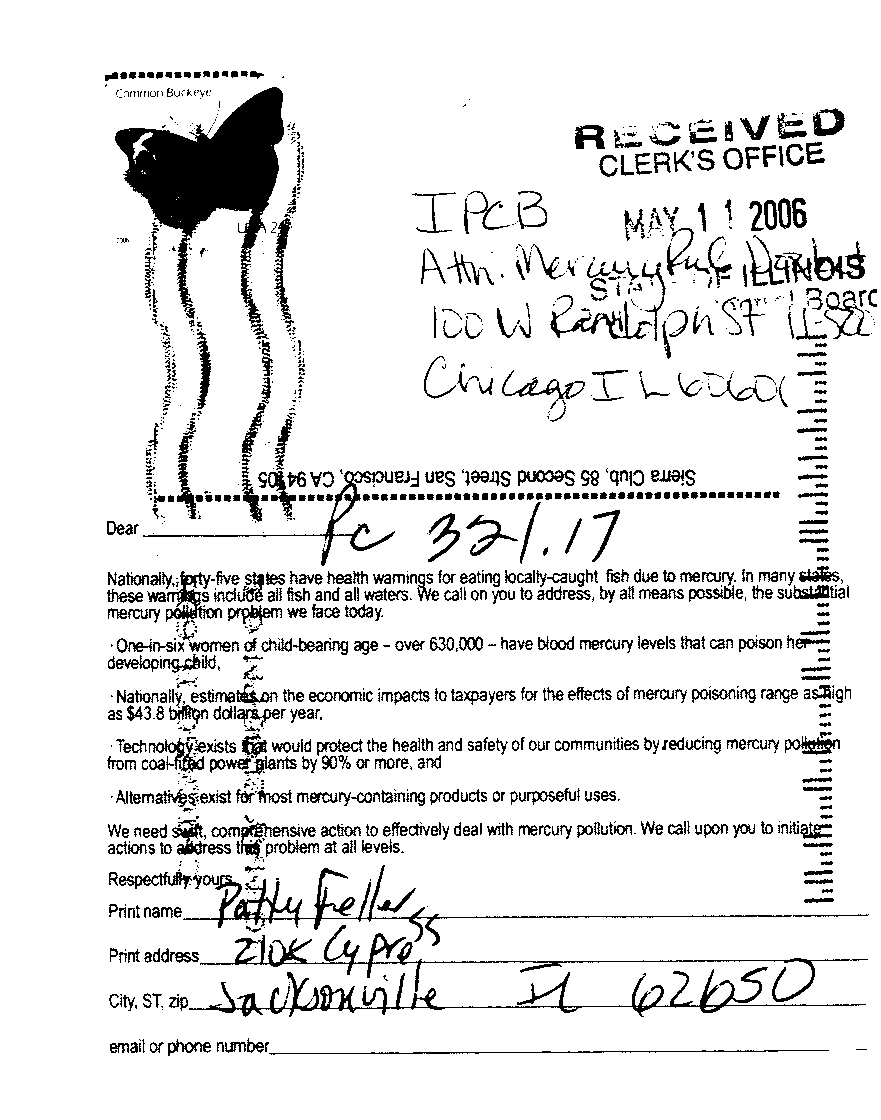 Common Buckeye
USA 24
RECEIVED
CLERK'S OFFICE
MAY 11 2006
STATE OF ILLINOIS
Board
IPCB
Attn. Mercury Rule Docket
100 W Randolph ST 11-500
Chicago IL 60601
Sierra Club, 85 Second Street, San Francisco, CA 94105
Dear
PC 321.17
Nationally, forty-five states have health warnings for eating locally-caught fish due to mercury. In many states,
these warnings include all fish and all waters. We call on you to address, by all means possible, the substantial
mercury pollution problem we face today.
· One-in-six women of child-bearing age – over 630,000 – have blood mercury levels that can poison her
developing child,
· Nationally, estimates on the economic impacts to taxpayers for the effects of mercury poisoning range as high
as $43.8 billion dollars per year,
· Technology exists that would protect the health and safety of our communities by reducing mercury pollution
from coal-fired power plants by 90% or more, and
· Alternatives exist for most mercury-containing products or purposeful uses.
We need swift, comprehensive action to effectively deal with mercury pollution. We call upon you to initiate
actions to address this problem at all levels.
Respectfully yours,
Print name Patty Feller
Print address 210 Cypress
City, ST, zip Jacksonville IL 62650
email or phone number